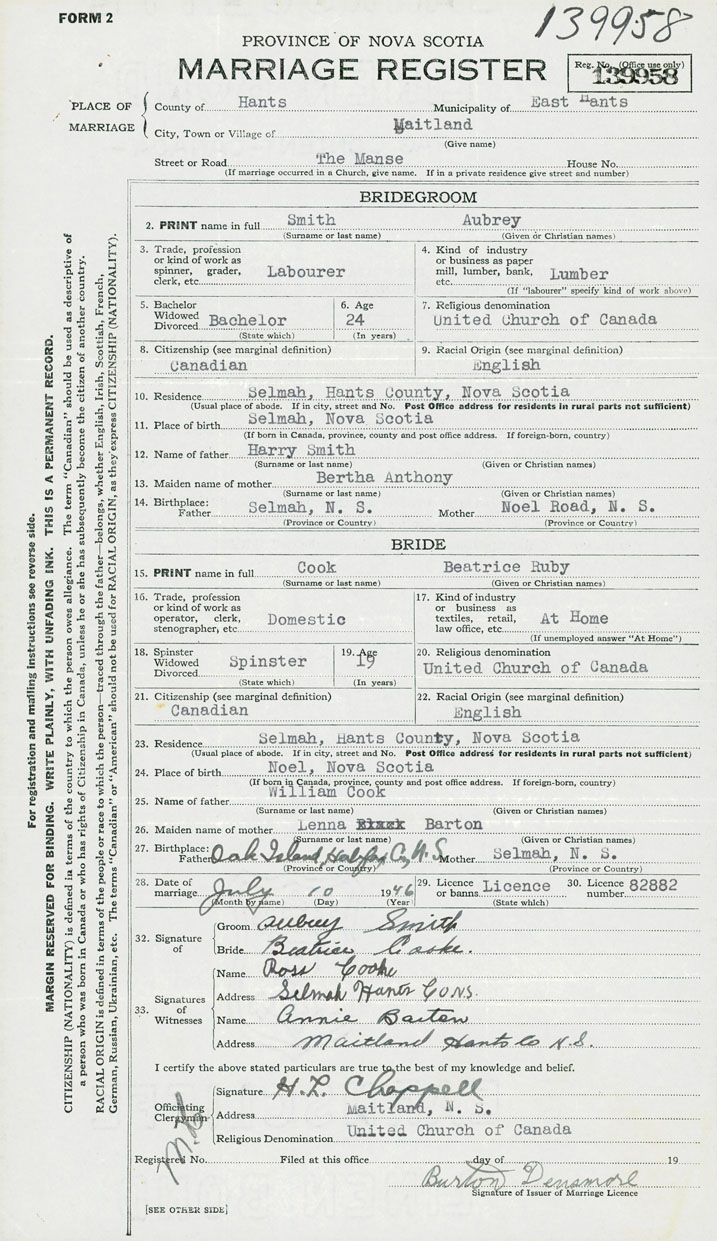 FORM 2
139958
PROVINCE OF NOVA SCOTIA
MARRIAGE REGISTER
Reg. No. (Office use only)
139958
PLACE OF MARRIAGE
County of Hants Municipality of East Hants
City, Town or Village of Maitland
(Give name)
Street or Road The Manse House No.
(If marriage occurred in a Church, give name. If in a private residence give street and number)
BRIDEGROOM
2. PRINT name in full Smith Aubrey
(Surname or last name) (Given or Christian names)
3. Trade, profession or kind of work as spinner, grader, clerk, etc. Labourer
4. Kind of industry or business as paper mill, lumber, bank, etc. Lumber
(If "labourer" specify kind of work above)
5. Bachelor Widowed Divorced Bachelor
(State which)
6. Age 24
(In years)
7. Religious denomination
United Church of Canada
8. Citizenship (see marginal definition)
Canadian
9. Racial Origin (see marginal definition)
English
10. Residence Selmah, Hants County, Nova Scotia
(Usual place of abode. If in city, street and No. Post Office address for residents in rural parts not sufficient)
11. Place of birth Selmah, Nova Scotia
(If born in Canada, province, county and post office address. If foreign-born, country)
12. Name of father Harry Smith
(Surname or last name) (Given or Christian names)
13. Maiden name of mother Bertha Anthony
(Surname or last name) (Given or Christian names)
14. Birthplace: Father Selmah, N. S. Mother Noel Road, N. S.
(Province or Country) (Province or Country)
BRIDE
15. PRINT name in full Cook Beatrice Ruby
(Surname or last name) (Given or Christian names)
16. Trade, profession or kind of work as operator, clerk, stenographer, etc. Domestic
17. Kind of industry or business as textiles, retail, law office, etc. At Home
(If unemployed answer "At Home")
18. Spinster Widowed Divorced Spinster
(State which)
19. Age 19
(In years)
20. Religious denomination
United Church of Canada
21. Citizenship (see marginal definition)
Canadian
22. Racial Origin (see marginal definition)
English
23. Residence Selmah, Hants County, Nova Scotia
(Usual place of abode. If in city, street and No. Post Office address for residents in rural parts not sufficient)
24. Place of birth Noel, Nova Scotia
(If born in Canada, province, county and post office address. If foreign-born, country)
25. Name of father William Cook
(Surname or last name) (Given or Christian names)
26. Maiden name of mother Lenna Barton
(Surname or last name) (Given or Christian names)
27. Birthplace: Father Oak Island, Halifax Co, N. S. Mother Selmah, N. S.
(Province or Country) (Province or Country)
28. Date of marriage July 10 1946
(Month by name) (Day) (Year)
29. Licence or banns Licence
(State which)
30. Licence number 82882
32. Signature of
Groom Aubrey Smith
Bride Beatrice Cooke.
33. Signatures of Witnesses
Name Ross Cooke
Address Selmah Hants Co NS.
Name Annie Barton
Address Maitland Hants Co N.S.
I certify the above stated particulars are true to the best of my knowledge and belief.
Officiating Clergyman
Signature H. L. Chappell
Address Maitland, N. S.
Religious Denomination United Church of Canada
Registered No. Filed at this office day of 19
Burton Densmore
Signature of Issuer of Marriage Licence
[SEE OTHER SIDE]
For registration and mailing instructions see reverse side.
MARGIN RESERVED FOR BINDING. WRITE PLAINLY, WITH UNFADING INK. THIS IS A PERMANENT RECORD.
CITIZENSHIP (NATIONALITY) is defined in terms of the country to which the person owes allegiance. The term "Canadian" should be used as descriptive of
a person who was born in Canada or who has rights of Citizenship in Canada, unless he or she has subsequently become the citizen of another country.
RACIAL ORIGIN is defined in terms of the people or race to which the person—traced through the father—belongs, whether English, Irish, Scottish, French,
German, Russian, Ukrainian, etc. The terms "Canadian" or "American" should not be used for RACIAL ORIGIN, as they express CITIZENSHIP (NATIONALITY).